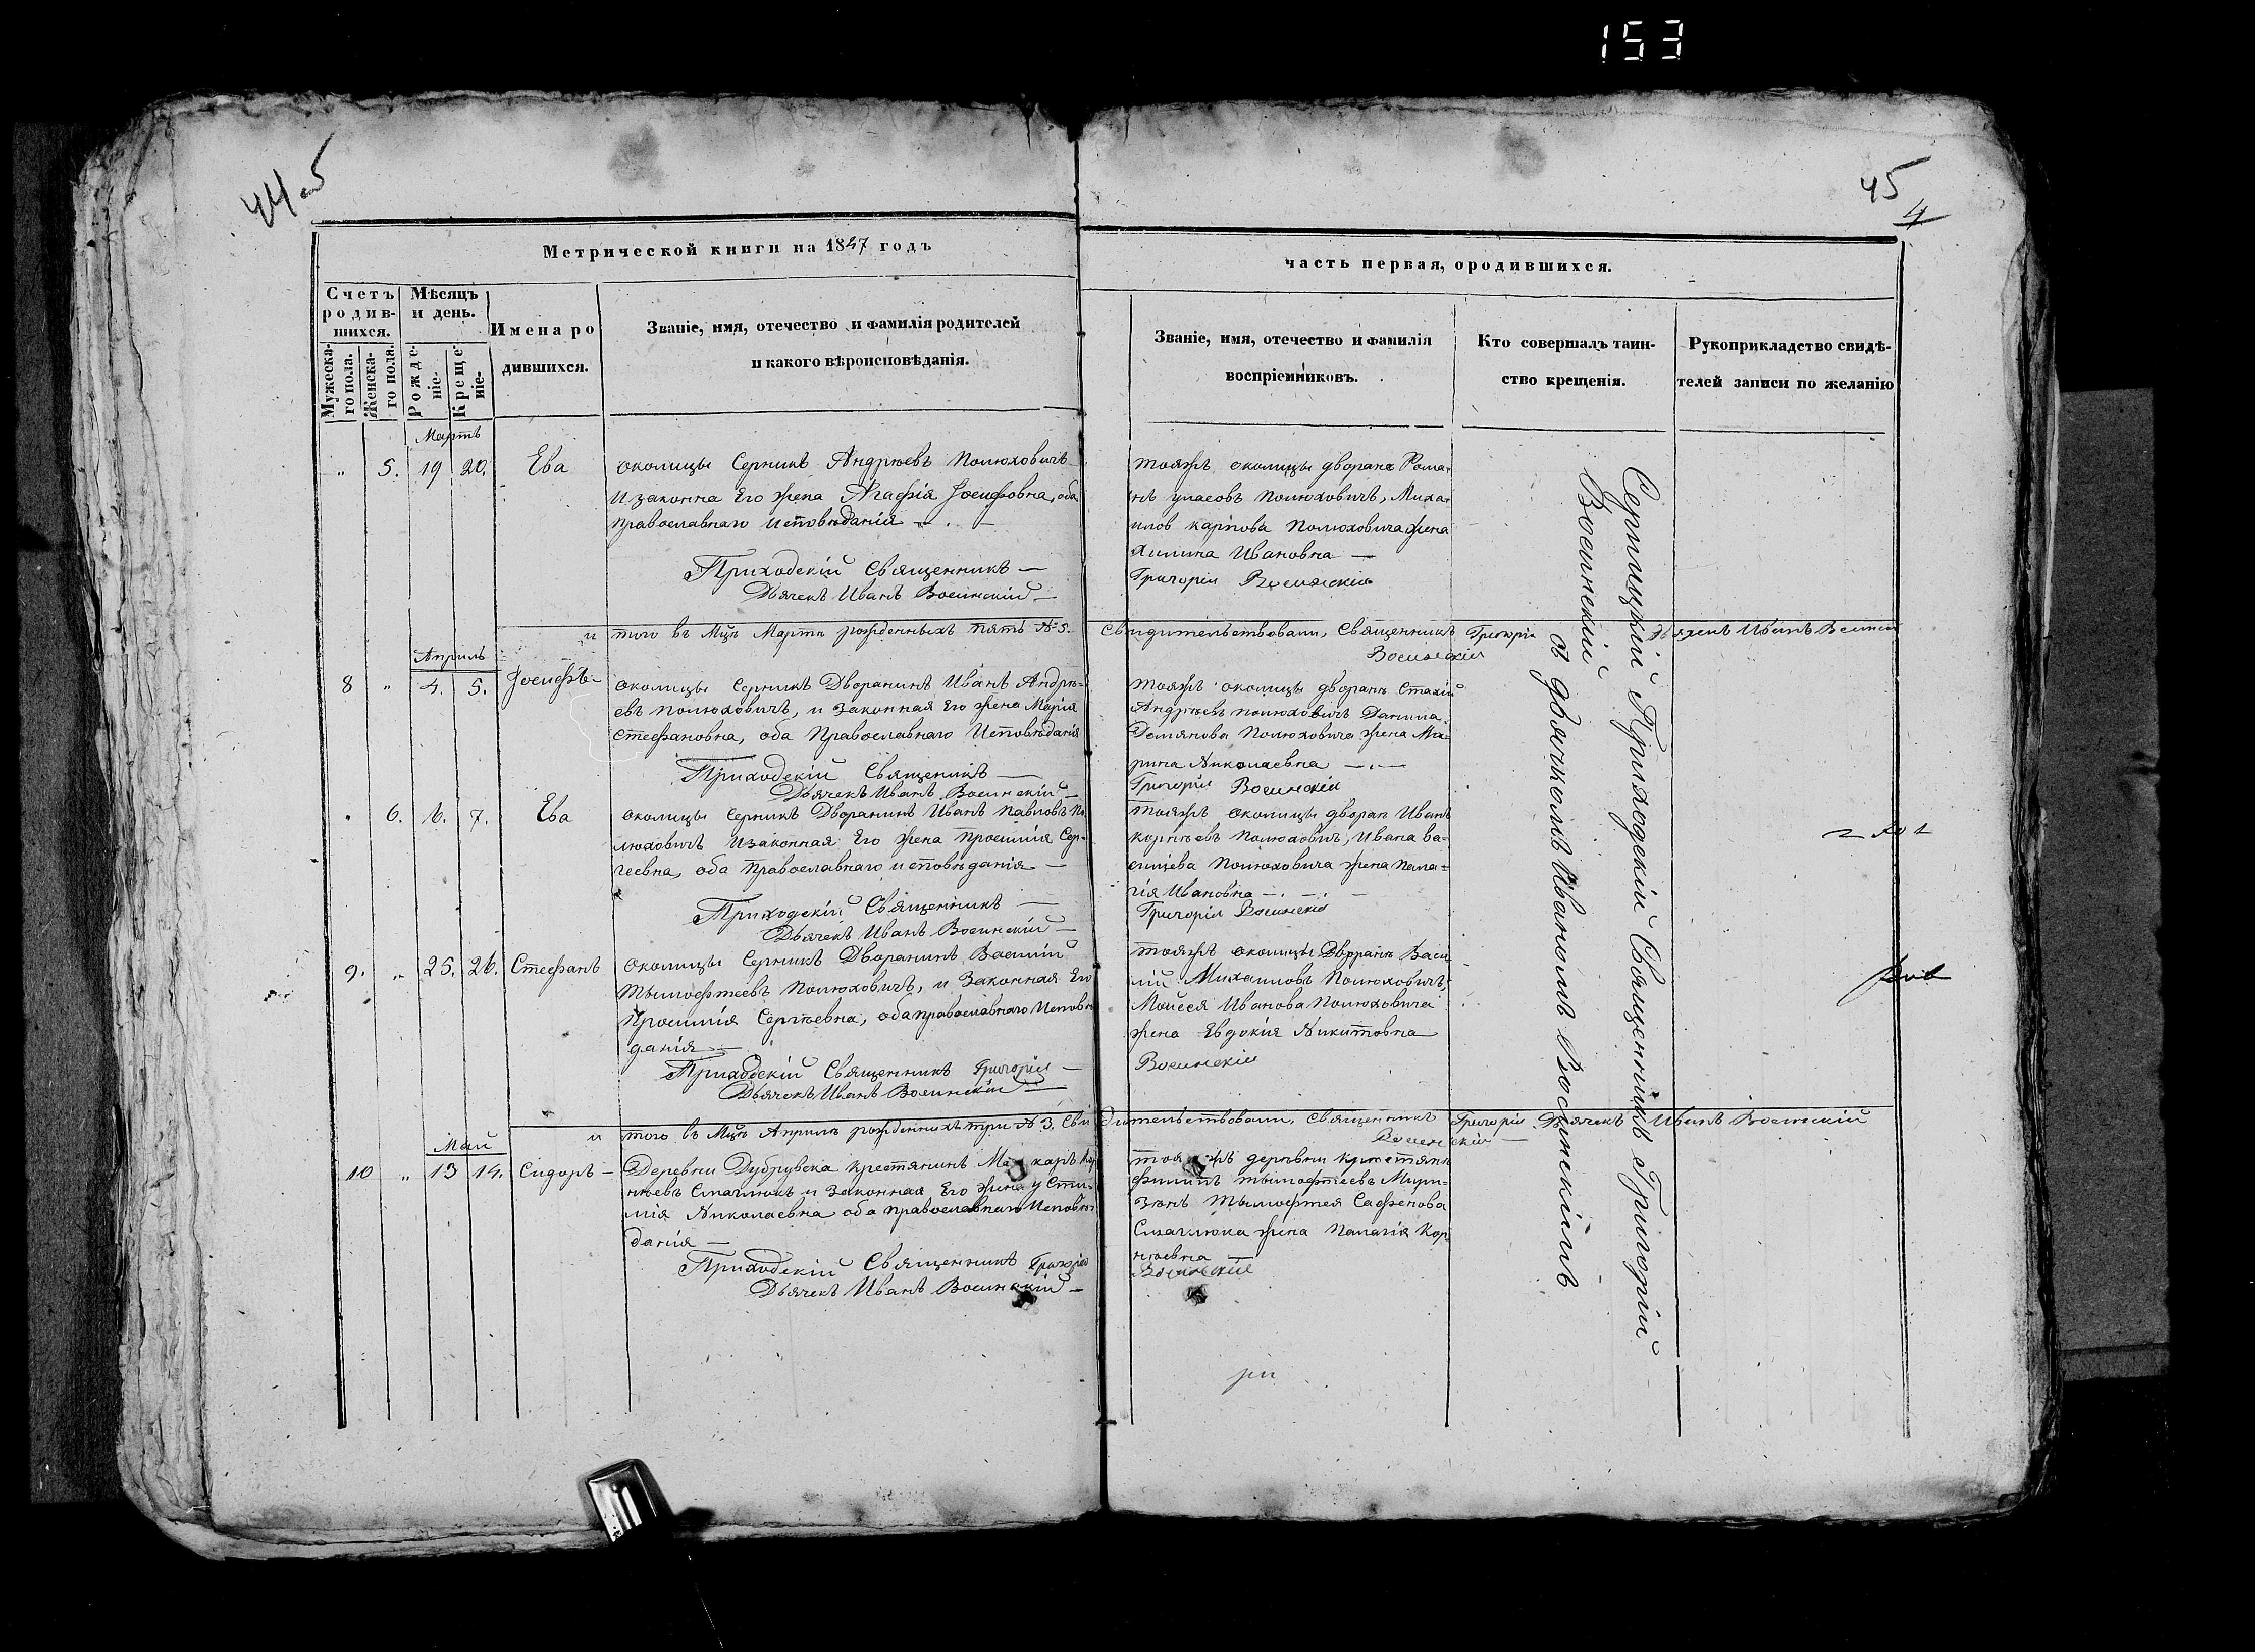 153
44об
45
4
Метрической книги на 1847 годъ
часть первая, ородившихся.
Счетъ родив-шихся.
Мѣсяцъ и день.
Имена ро
дившихся.
Званіе, имя, отечество и фамилія родителей
и какого вѣроисповѣданія.
Званіе, имя, отечество и фамилія
воспріемниковъ.
Кто совершалъ таин-
ство крещенія.
Рукоприкладство свидѣ-
телей записи по желанію
Мужеска-го пола.
Женска-го пола.
Рожде-ніе-
Креще-ніе-
Мартъ
" 5. 19 20. Ева
околицы Серникъ Андрѣевъ Полюховичъ
и законна Его жена Агафія Іосифовна, оба
православнаго исповѣданія
Приходскій Священникъ —
Дьячекъ Иванъ Восинскій —
тояжъ околицы дворане Рома-
нъ Уласовъ Полюховичъ, Миха-
илов Карпова Полюховича жена
Ивановна —
Григорій Восинскій
и того въ Мцѣ Мартѣ рожденныхъ пять № 5. Свидителствовали, Священникъ Григорій Восинскій Дьячекъ Иванъ Восинскій
Апрѣль
8 " 4. 5. Іосифъ-
околицы Серникъ Дворанинъ Иванъ Андрѣ-
евъ Полюховичъ, и законная Его жена Марія
Стефановна, оба Православнаго Исповѣданія
Приходскій Священикъ —
Дьячекъ Иванъ Восинскій —
тояжъ околицы дворанъ Стахій
Андрѣевъ Полюховичъ Данила
Демянова Полюховича жена Ма-
рина Николаевна —
Григорій Восинскій
" 6. 6. 7. Ева
околицы Серникъ Дворанинъ Иванъ Павловъ По
люховичъ и законная Его жена Просимія Сер-
геевна, оба Православнаго исповѣданія —
Приходскій Священникъ —
Дьячекъ Иванъ Восинскій —
тояжъ околицы дворан Иванъ
Корнѣевъ Полюхович, Ивана Ва-
силіева Полюховича жена Пела-
гія Ивановна —
Григорій Восинскій
9. " 25. 26. Стефанъ
околицы Серникъ Дворанинъ Василій
Тымофтеевъ Полюховичъ, и Законная Его
Просимія Сергѣевна, оба православнаго Исповѣ
данія —
Приходскій Священникъ Григорій —
Дьячекъ Иванъ Восинскій —
тояжъ околицы Дворанъ Васи
лій Михаиловъ Полюховичъ,
Мойсея Иванова Полюховича
жена Евдокія Никитовна
Восинскій
и того въ Мцѣ Априлѣ рожденныхъ три № 3. Свидителствовали, Священникъ Григорій Восинскій — Дьячекъ Иванъ Восинскій
Май
10 " 13 14. Сидоръ —
Деревни Дубрувска крестянинъ Макаръ Кор
нѣевъ Смаглюкъ и законная Его жена Усти-
мія Николаевна оба православнаго Исповѣ
данія —
Приходскій Священникъ Григорій
Дьячекъ Иванъ Восинскій —
тояжъ деревни крестянъ
Филипъ Тымофтеевъ
Тымофтея
Смаглюка жена Палагія Кор
нѣевна —
Восинскій
Серницкій Приходскій Священникъ Григорій
Восинскій съ дьячкомъ Иваномъ Восинскимъ